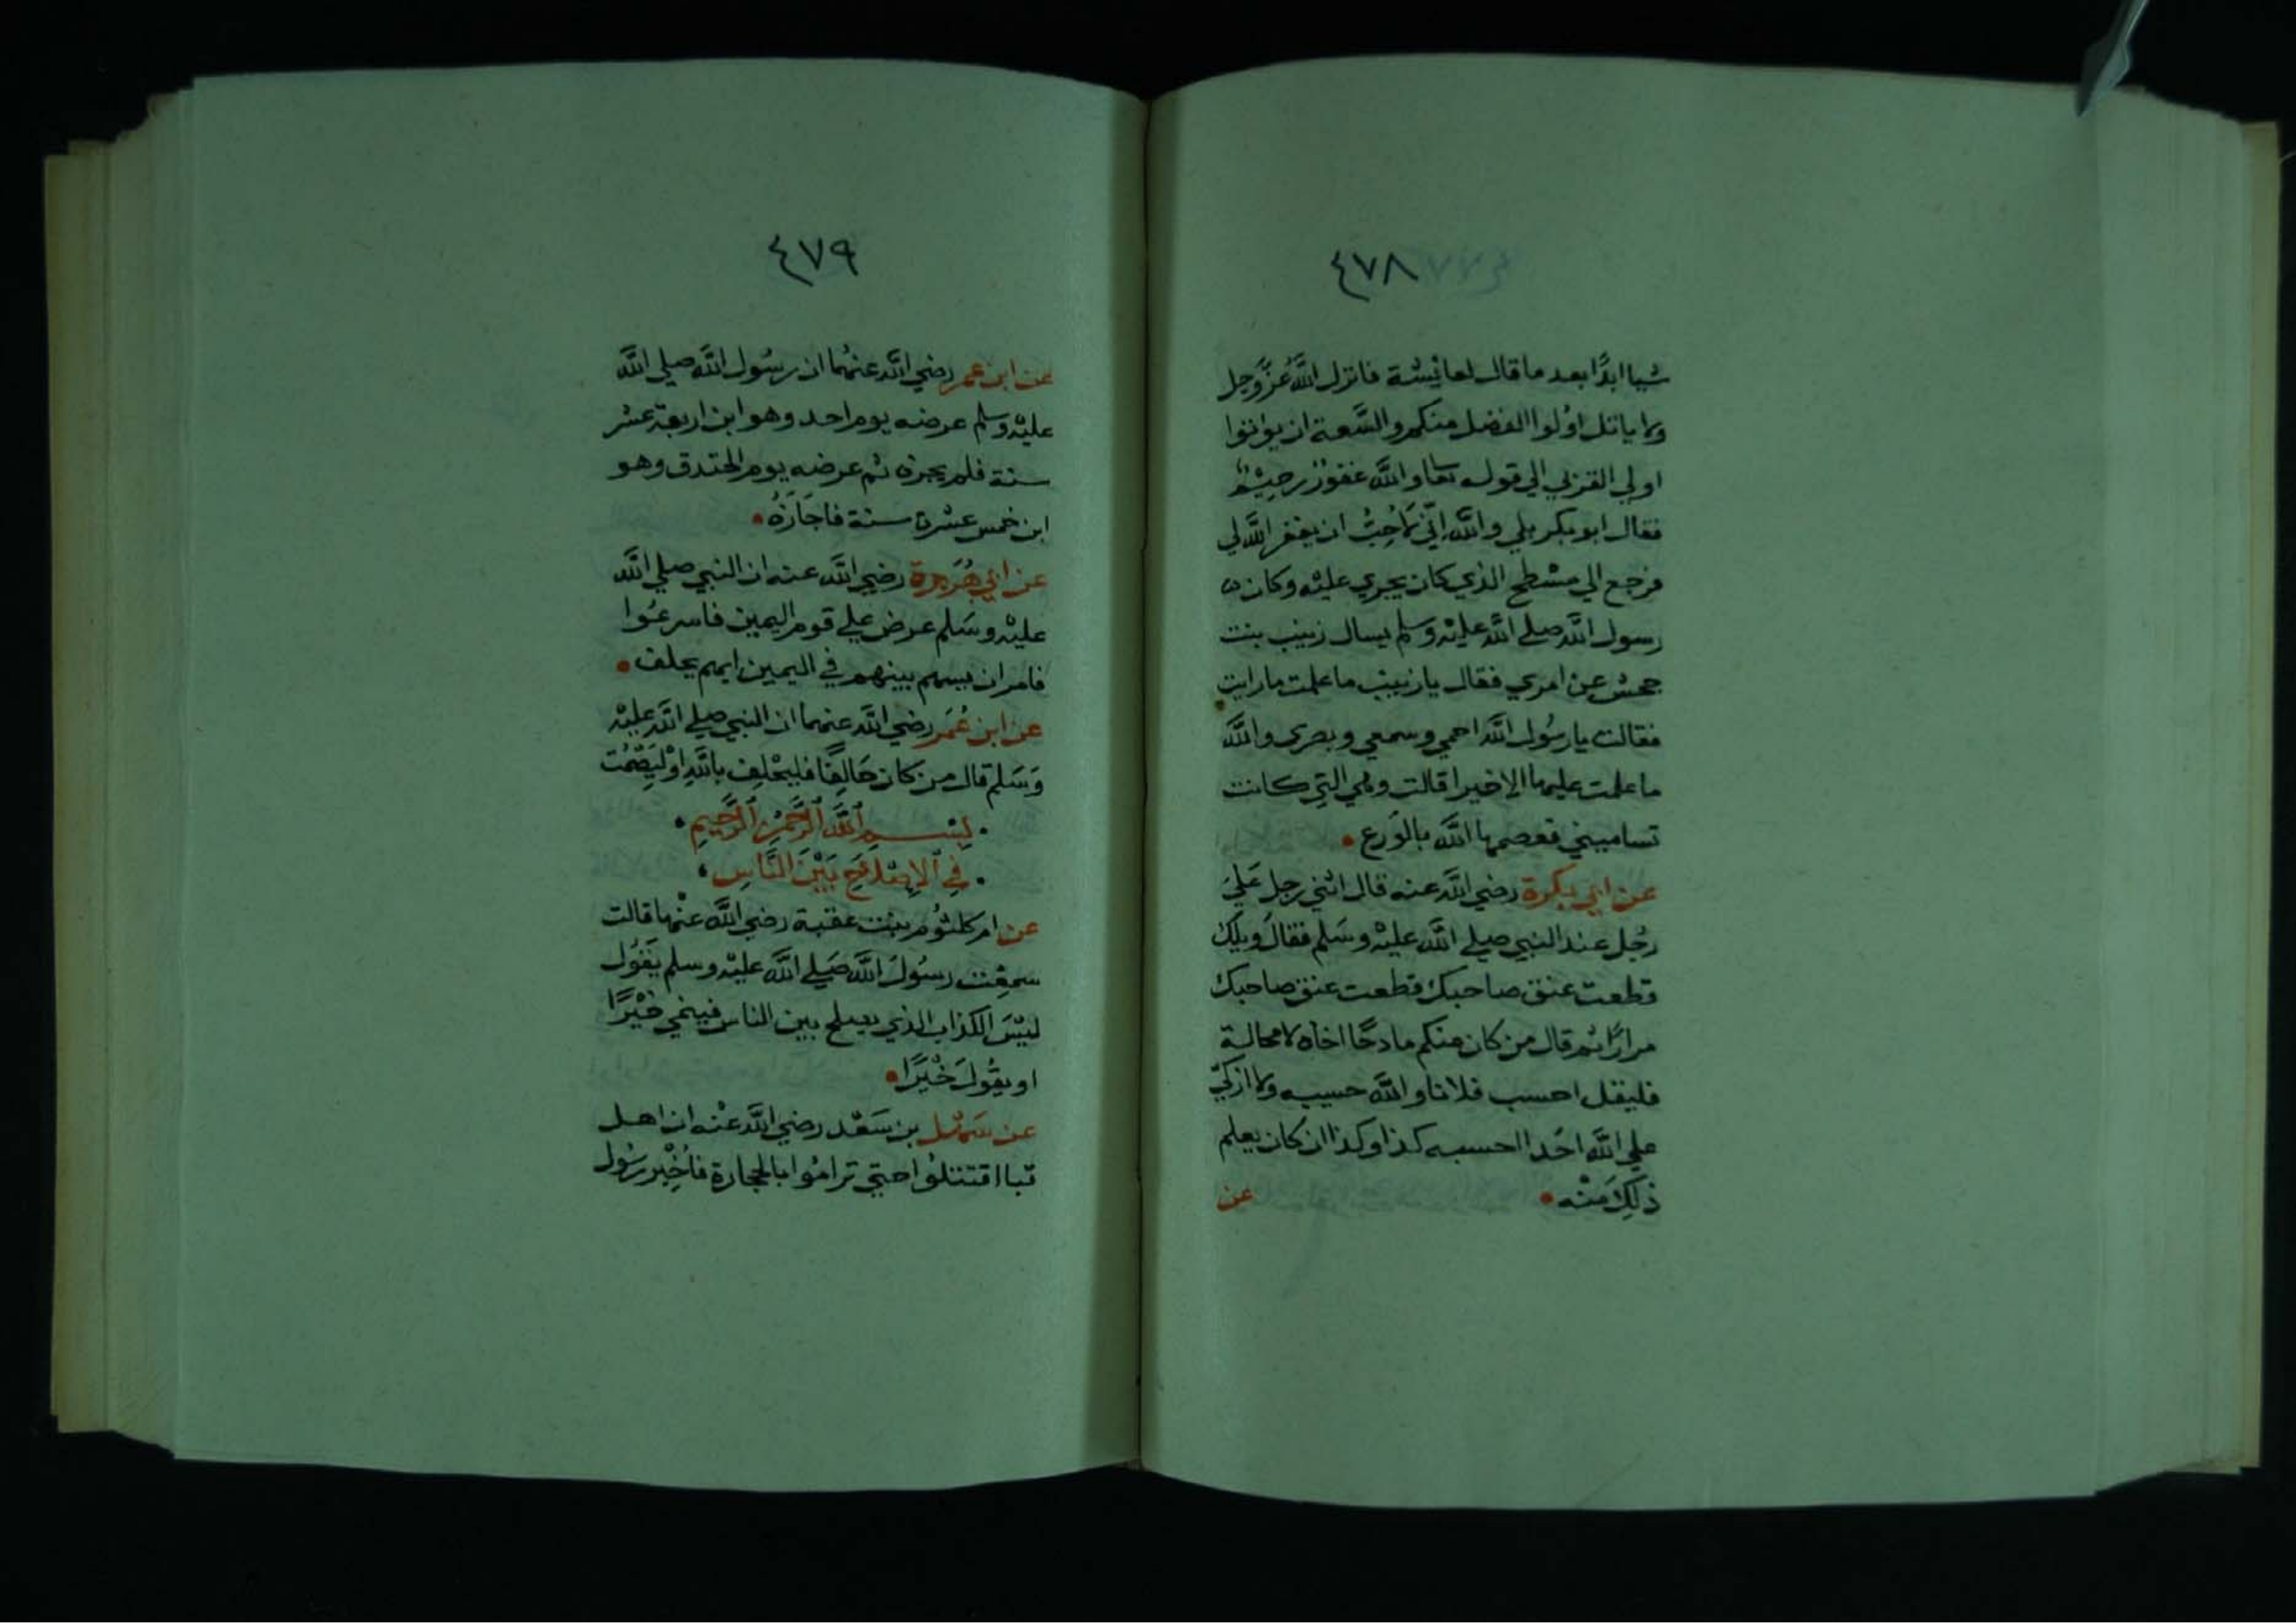 ٤٧٨
شيا ابدًا بعد ما قال لعائشة فانزل اللَّه عزَّوجل
ولا ياتل اولوا الفضل منكم والسَّعة ان يوتوا
اولي القربي الي قوله تعا واللَّه غفورٌ رحيْمٌ
فقال ابو بكر بلي واللَّه انّي لاحِبُّ ان يغفر اللَّه لي
فرجع الي مسْطح الذي كان يجري عليْه وكان
رسول اللَّه صلي اللَّه عليْه وسلم يسال زينب بنت
جحش عن امري فقال يا زينب ما علمت ما رايت
فقالت يا رسُول اللَّه احمي وسمعي وبصري واللَّه
ما علمت عليها الا خيرا قالت وهي التي كانت
تساميني فعصمها اللَّه بالوَرع
عن ابي بكرة رضي اللَّه عنه قال اثني رجل عَليَ
رجُل عند النبي صلي اللَّه عليْه وسَلم فقال ويلك
قطعت عنق صاحبك قطعت عنق صاحبك
مرارًا ثم قال من كان منكم مادحًا اخاه لا محالة
فليقل احسب فلانا واللَّه حسيبه ولا ازكيّ
علي اللَّه احَدا احسبه كذا وكذا ان كان يعلم
ذلِكَ منْه
عن
٤٧٩
عن ابن عمر رضي اللَّه عنهُما ان رسُول اللَّه صلي اللَّه
عليْه وسلم عرضه يوم احد وهو ابن اربعة عشر
سنة فلم يجزه ثم عرضه يوم الخندق وهو
ابن خمس عشرة سنة فاجَازَهُ
عن ابي هُرَيرة رضي اللَّه عنه ان النبي صلي اللَّه
عليْه وسَلم عرض علي قوم اليمين فاسرعُوا
فامر ان يسهم بينهم في اليمين ايهم يحلف
عن ابن عُمَر رضي اللَّه عنهما ان النبي صلي اللَّه عليْه
وَسَلم قال من كان حَالِفًا فليحْلِف باللَّهِ اوْ ليَصْمُت
بِسْمِ ٱللَّهِ ٱلرَّحْمٰنِ ٱلرَّحِيمِ
فِي ٱلْاِصْلَاحِ بَيْنَ النَّاسِ
عن ام كلثُوم بنت عقبة رضي اللَّه عنْها قالت
سمِعْت رسُولَ اللَّه صَلي اللَّه عليْه وسلم يَقُول
ليْسَ الكذاب الذي يصلح بين الناس فينمي خيْرًا
او يقُولَ خَيْرًا
عن سَهْل بن سَعْد رضي اللَّه عنْه ان اهل
قبا اقتتلُوا حتي ترامُوا بالحجارة فاُخْبِر رسُول